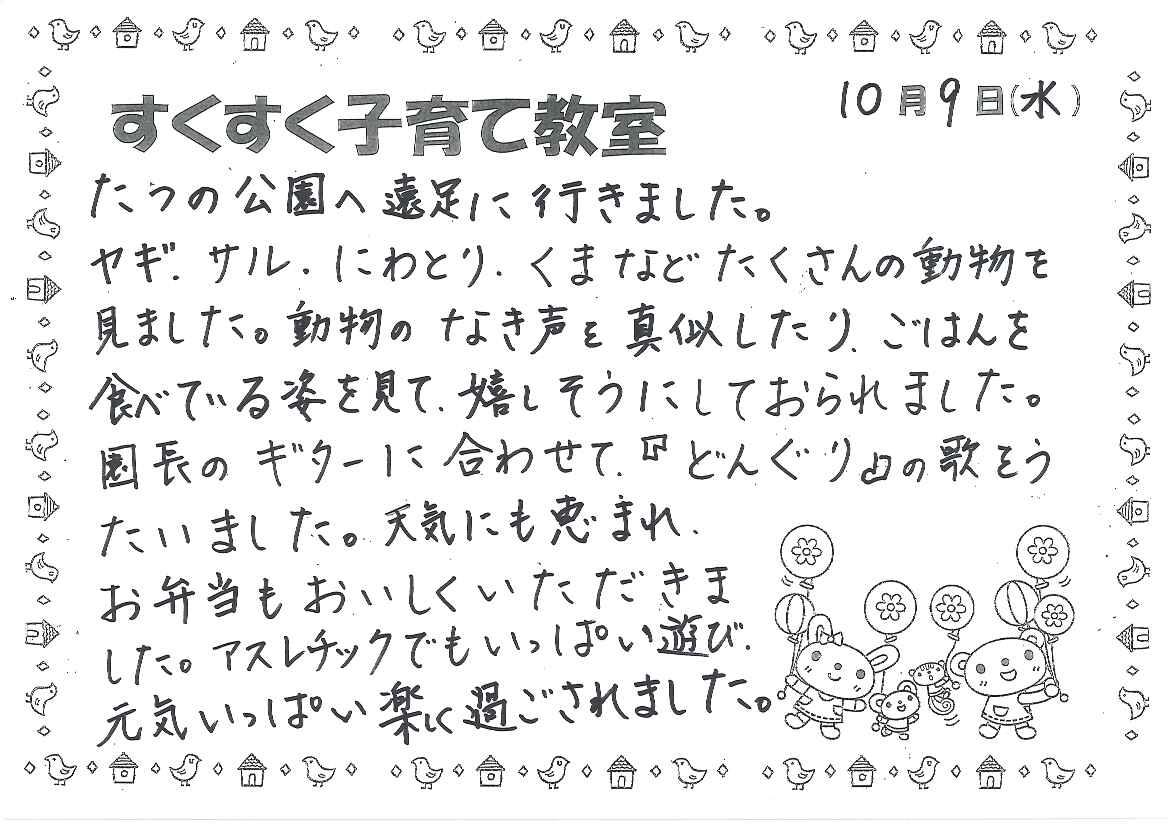 すくすく子育て教室
10月9日(水)
たつの公園へ遠足に行きました。
ヤギ、サル、にわとり、くまなどたくさんの動物を
見ました。動物のなき声を真似したり、ごはんを
食べている姿を見て、嬉しそうにしておられました。
園長のギターに合わせて、『どんぐり』の歌をう
たいました。天気にも恵まれ、
お弁当もおいしくいただきま
した。アスレチックでもいっぱい遊び、
元気いっぱい楽しく過ごされました。